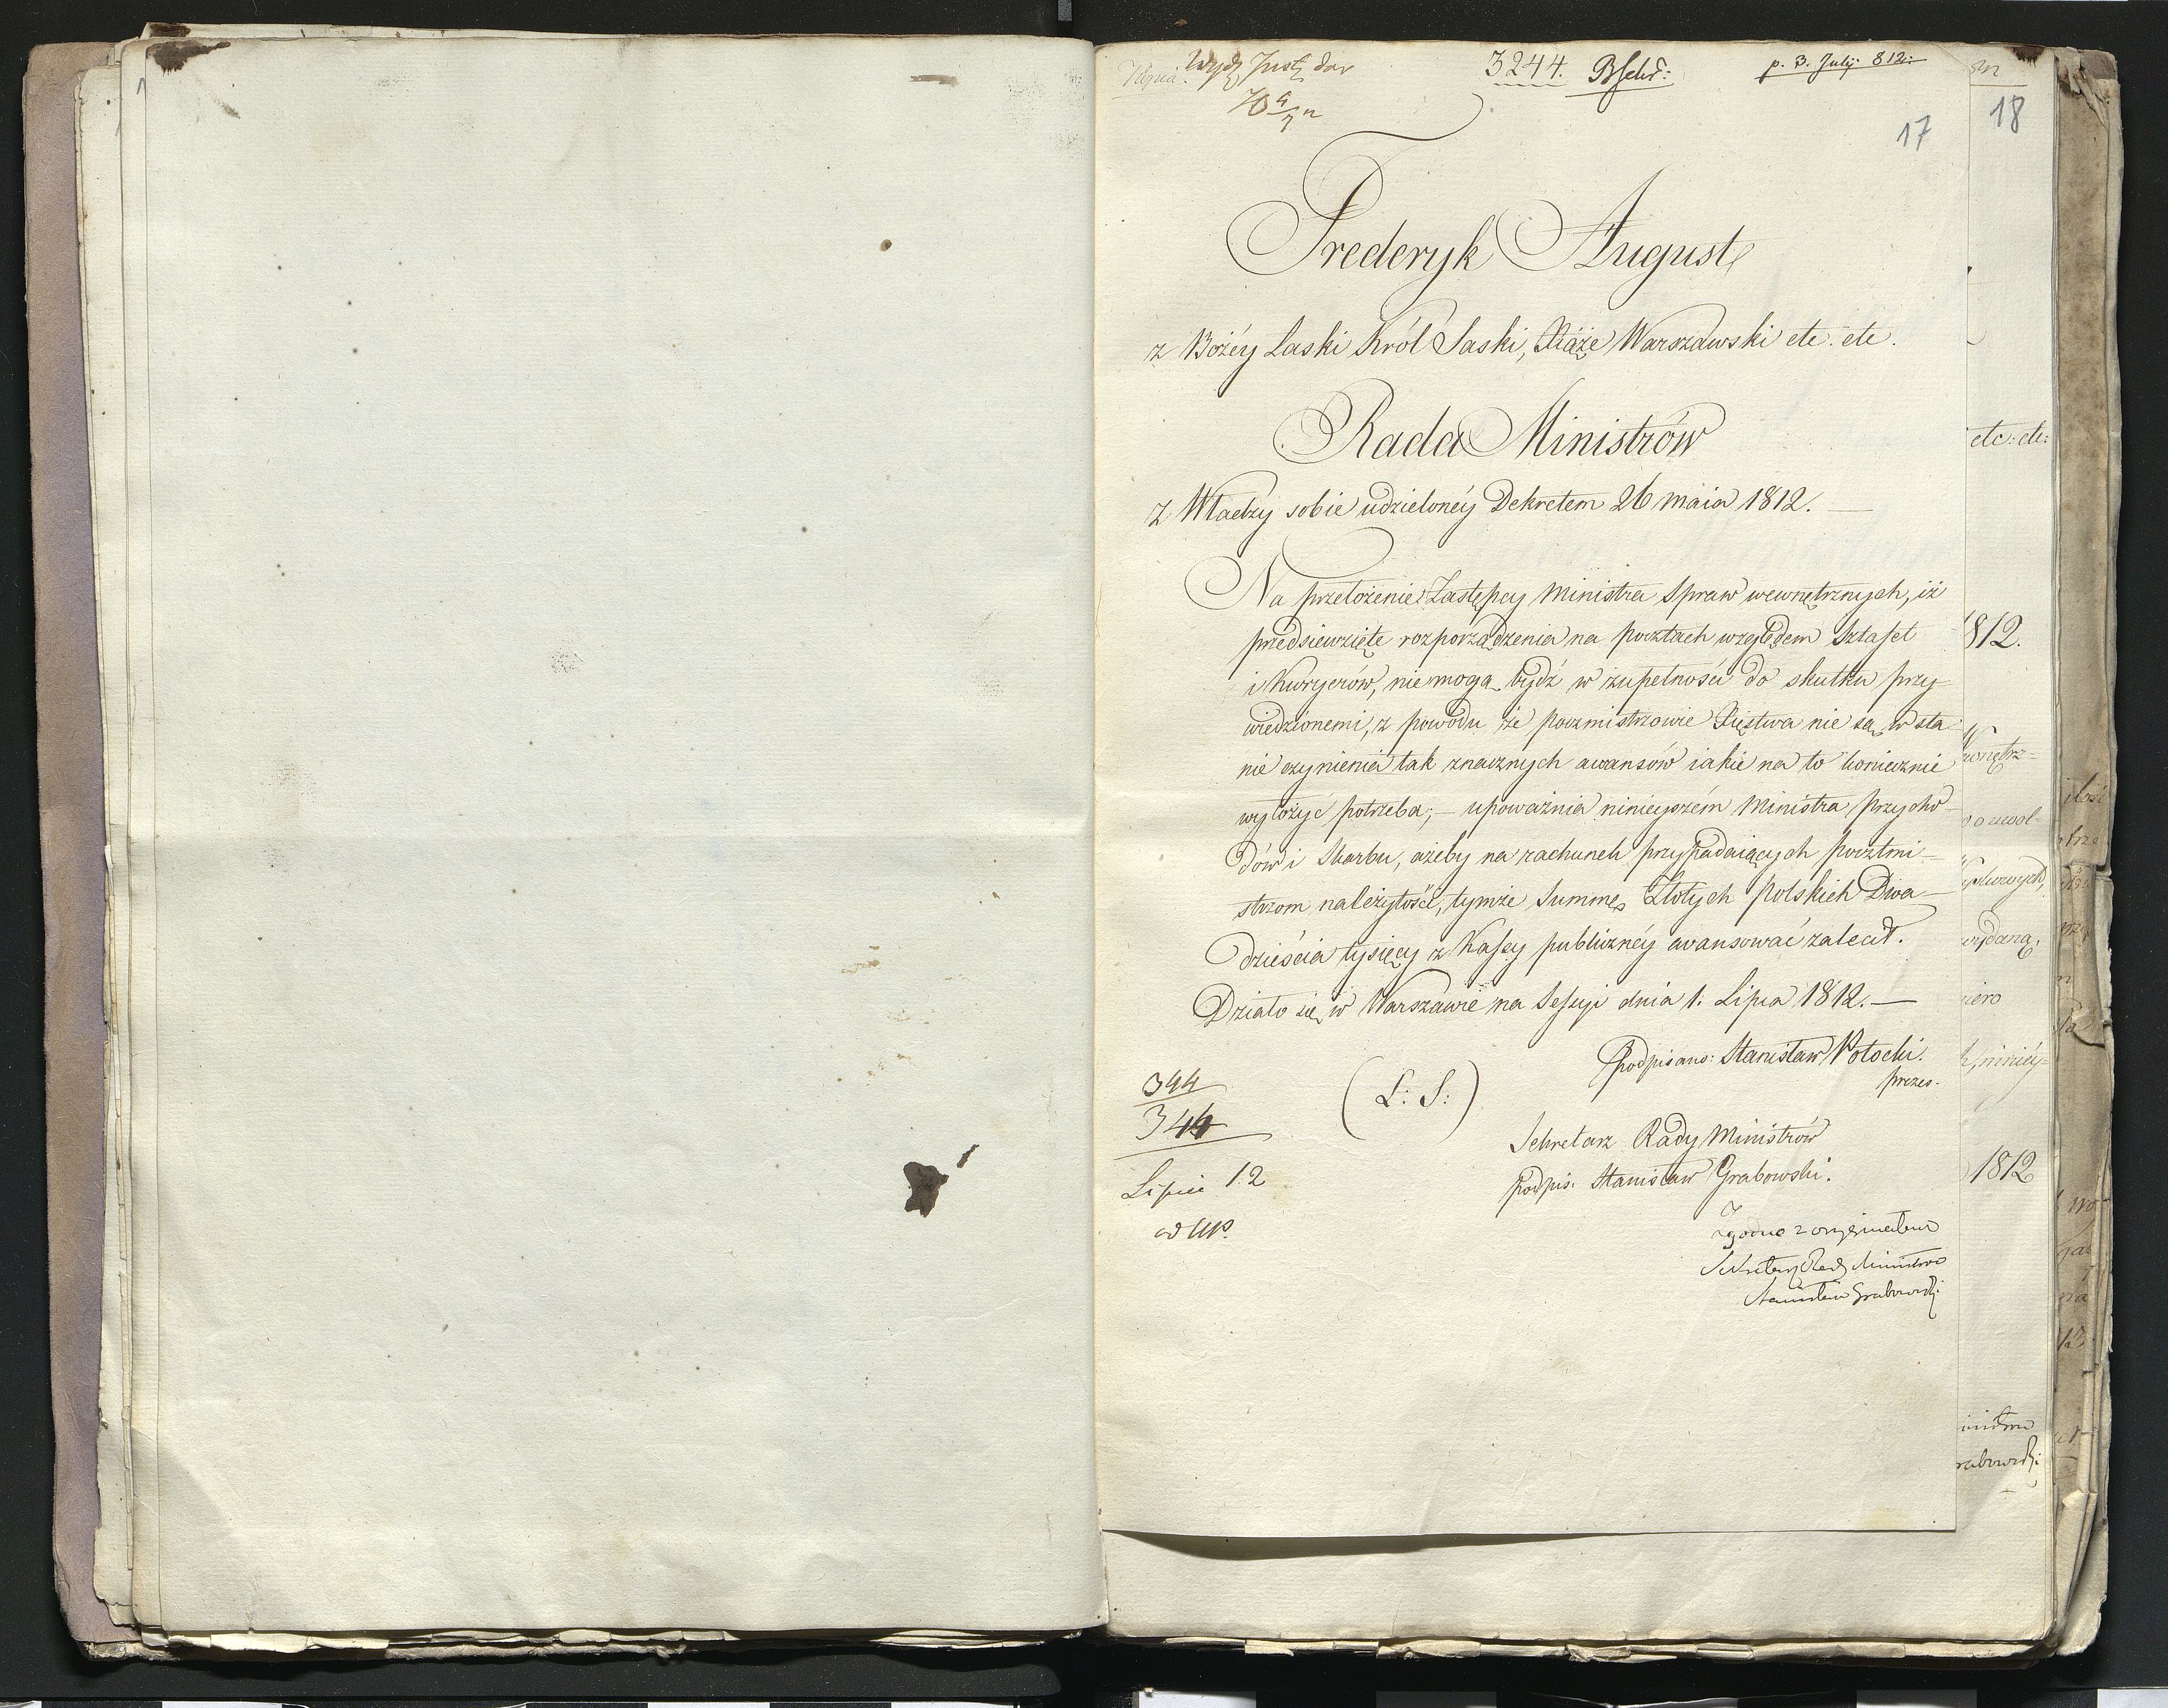 Wydz Just dar
3244.
p. 3. July 812:
17
18
Frederyk August
z Bożéy Łaski Król Saski, Xiąże Warszawski etc. etc.
Rada Ministrów
z Władzy sobie udzielonéy Dekretem 26 maia 1812. —
Na przełożenie Zastępcy Ministra Spraw wewnętrznych, iż
przedsiewzięte rozporządzenia na pocztach względem Sztafet
i Kuryerów, nie mogą bydź w zupełności do skutku przy-
wiedzionemi, z powodu że poczmistrzowie Xięstwa nie są w sta
nie czynienia tak znacznych awansów iakie na to koniecznie
wyłożyć potrzeba; — upoważnia ninieyszém Ministra Przycho-
dów i Skarbu, ażeby na rachunek przypadaiących pocztmi-
strzom należytości, tymże Summę Złotych polskich Dwa-
dzieścia tysięcy z Kassy publicznéy awansować zalecił.
Działo się w Warszawie na Sessyi dnia 1. Lipca 1812. —
Podpisano: Stanisław Potocki.
prezes.
(L: S:)
344
344
Sekretarz Rady Ministrów
podpis. Stanisław Grabowski.
Lipiec 12
Zgodno z oryginałem
Sekretarz Rady Ministrów
Stanisław Grabowski
etc: etc:
1812.
wydaną,
1812